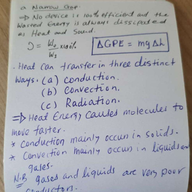 a Narrow Gap
=> No device is 100% efficient and the
Wasted Energy is always dissipated
as Heat and Sound
ΔGPE = mgΔh
. Heat can transfer in three distinct
ways. (a) conduction.
(b) Convection.
(c) Radiation.
=> Heat Energy causes molecules to
move faster.
* conduction mainly occur in solids.
* Convection mainly occurs in liquids or
gases.
N.B gases and liquids are very poor
conductors.